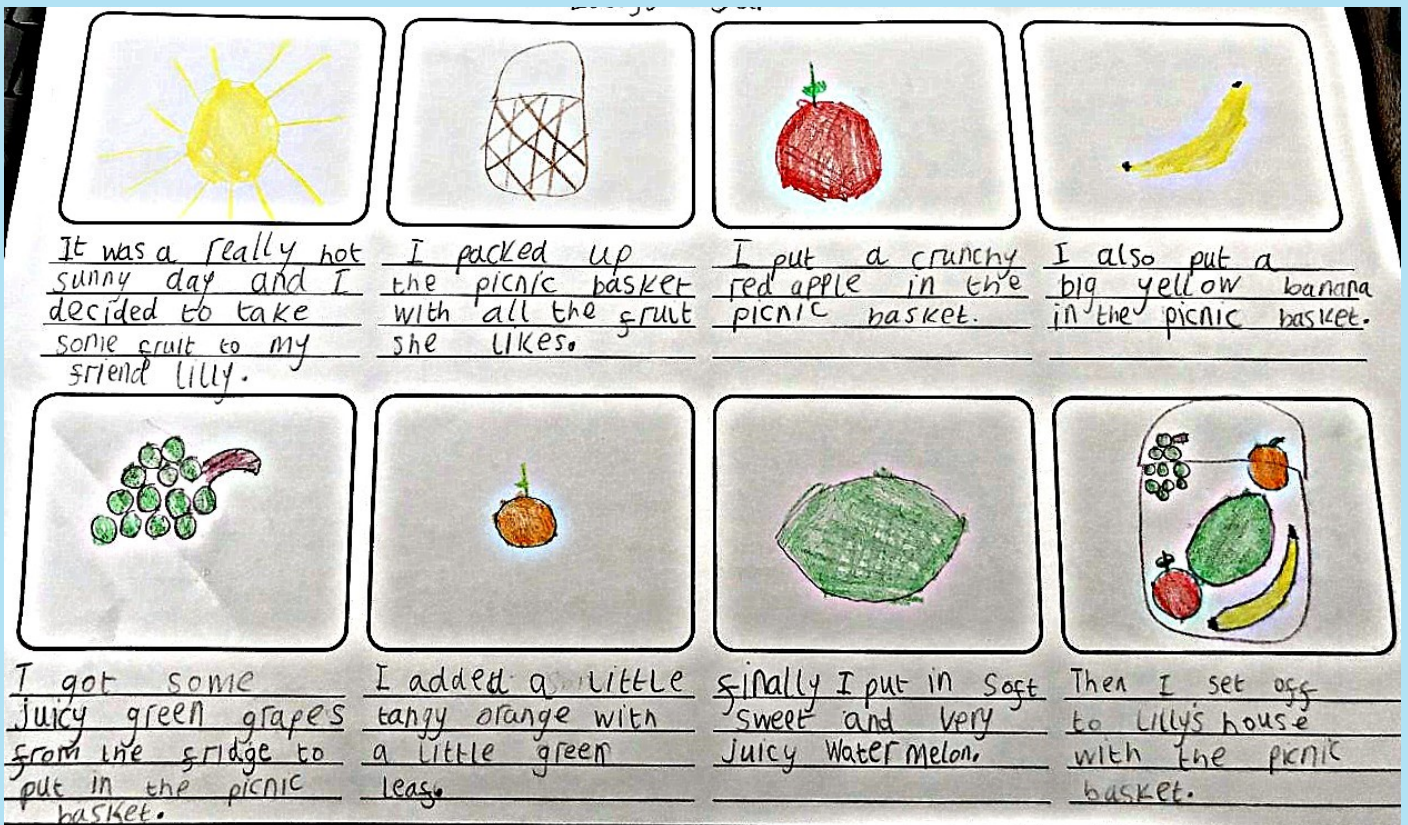 It was a really hot
sunny day and I
decided to take
some fruit to my
friend lilly.
I packed up
the picnic basket
with all the fruit
she likes.
I put a crunchy
red apple in the
picnic basket.
I also put a
big yellow banana
in the picnic basket.
I got some
juicy green grapes
from the fridge to
put in the picnic
basket.
I added a little
tangy orange with
a little green
leaf.
finally I put in soft
sweet and very
juicy watermelon.
Then I set off
to Lilly's house
with the picnic
basket.